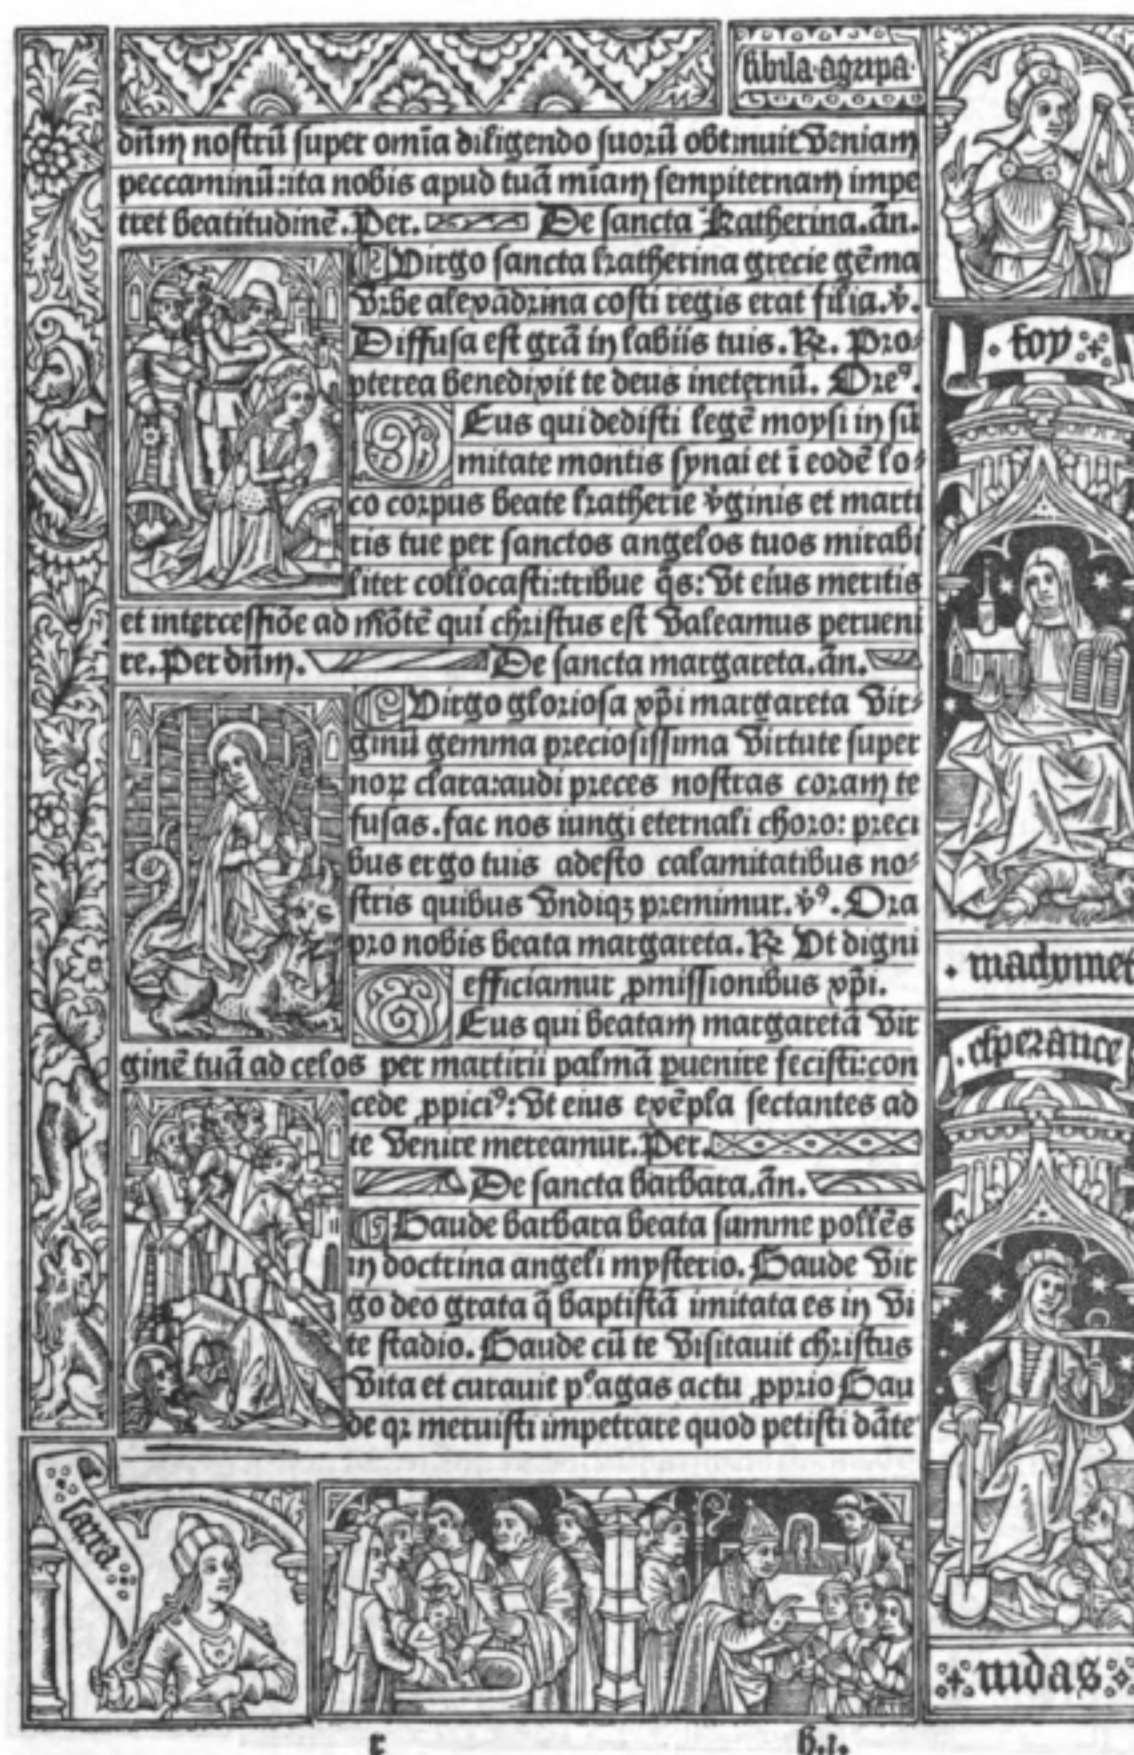 sibila agripa
dñm nostrũ super omĩa diligendo suorũ obtinuit Veniam
peccaminũ: ita nobis apud tuã mĩam sempiternam impe
tret beatitudinẽ. Per. De sancta Katherina. añ.
Virgo sancta katherina grecie gẽma
Vrbe alexãdrina costi regis erat filia. ℣.
Diffusa est grã in labiis tuis. ℟. Pro⸗
pterea benedixit te deus ineternũ. Oreꝰ.
DEus qui dedisti legẽ moysi in sũ
mitate montis synai et ĩ eodẽ lo⸗
co corpus beate katherie v̾ginis et marti
ris tue per sanctos angelos tuos mirabi
liter collocasti: tribue q̃s: Vt eius meritis
et intercessiõe ad mõtẽ qui christus est Valeamus perueni
re. Per dñm. De sancta margareta. añ.
Virgo gloriosa xp̃i margareta Vir⸗
ginũ gemma preciosissima Virtute super
noꝝ clara: audi preces nostras coram te
fusas. fac nos iungi eternali choro: preci
bus ergo tuis adesto calamitatibus no⸗
stris quibus Vndiqꝫ premimur. ℣ꝰ. Ora
pro nobis beata margareta. ℟ Vt digni
efficiamur ꝓmissionibus xp̃i.
DEus qui beatam margaretã Vir
ginẽ tuã ad celos per martirii palmã puenire fecisti: con
cede ꝓpiciꝰ: Vt eius exẽpla sectantes ad
te Venire mereamur. Per.
De sancta barbara. añ.
Gaude barbara beata summe pollẽs
in doctrina angeli mysterio. Gaude Vir
go deo grata q̃ baptistã imitata es in Vi
te stadio. Gaude cũ te Visitauit christus
Vita et curauit plagas actu ꝓprio Gau
de qꝛ meruisti impetrare quod petisti dãte
foy
madymet
esperance
iudas
sarra
r
h.i.